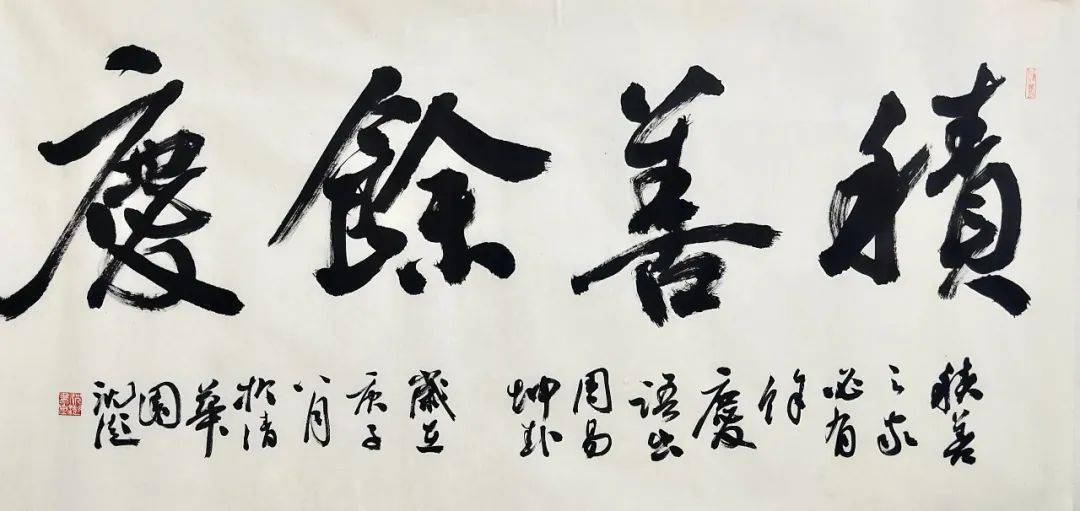 積善餘慶
積善
之家
必有
餘
慶
語出
周易
坤卦
歲在
庚子
八月
於清
華
園
沈